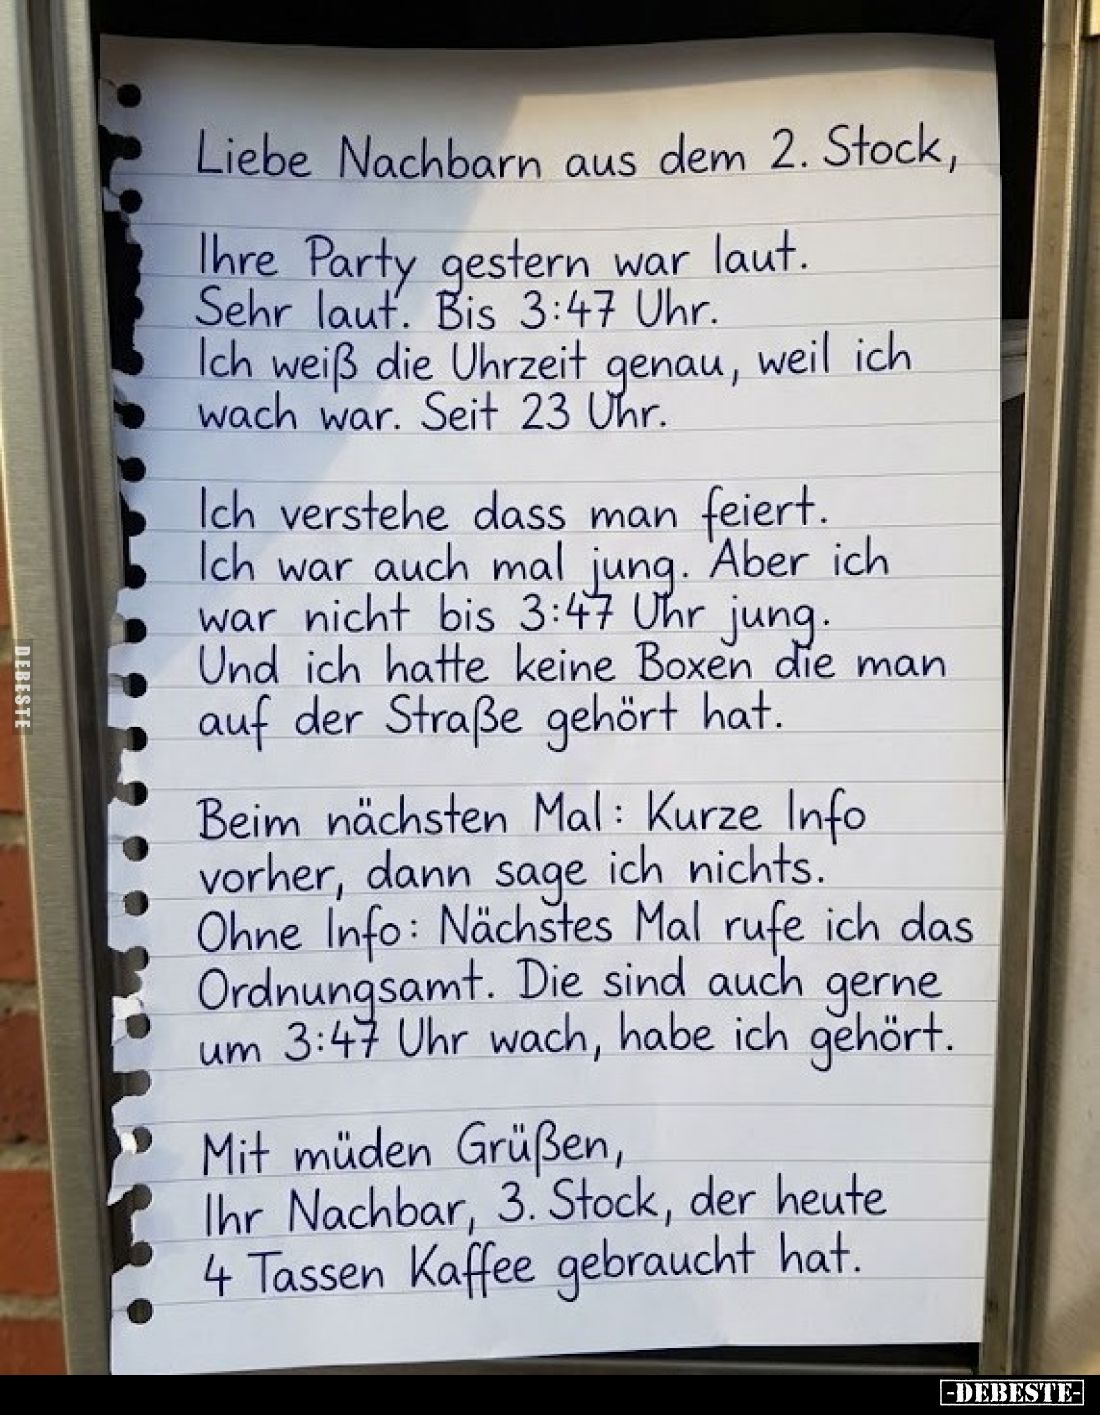 Liebe Nachbarn aus dem 2. Stock,
Ihre Party gestern war laut.
Sehr laut. Bis 3:47 Uhr.
Ich weiß die Uhrzeit genau, weil ich
wach war. Seit 23 Uhr.
Ich verstehe dass man feiert.
Ich war auch mal jung. Aber ich
war nicht bis 3:47 Uhr jung.
Und ich hatte keine Boxen die man
auf der Straße gehört hat.
Beim nächsten Mal: Kurze Info
vorher, dann sage ich nichts.
Ohne Info: Nächstes Mal rufe ich das
Ordnungsamt. Die sind auch gerne
um 3:47 Uhr wach, habe ich gehört.
Mit müden Grüßen,
Ihr Nachbar, 3. Stock, der heute
4 Tassen Kaffee gebraucht hat.
DEBESTE
-DEBESTE-